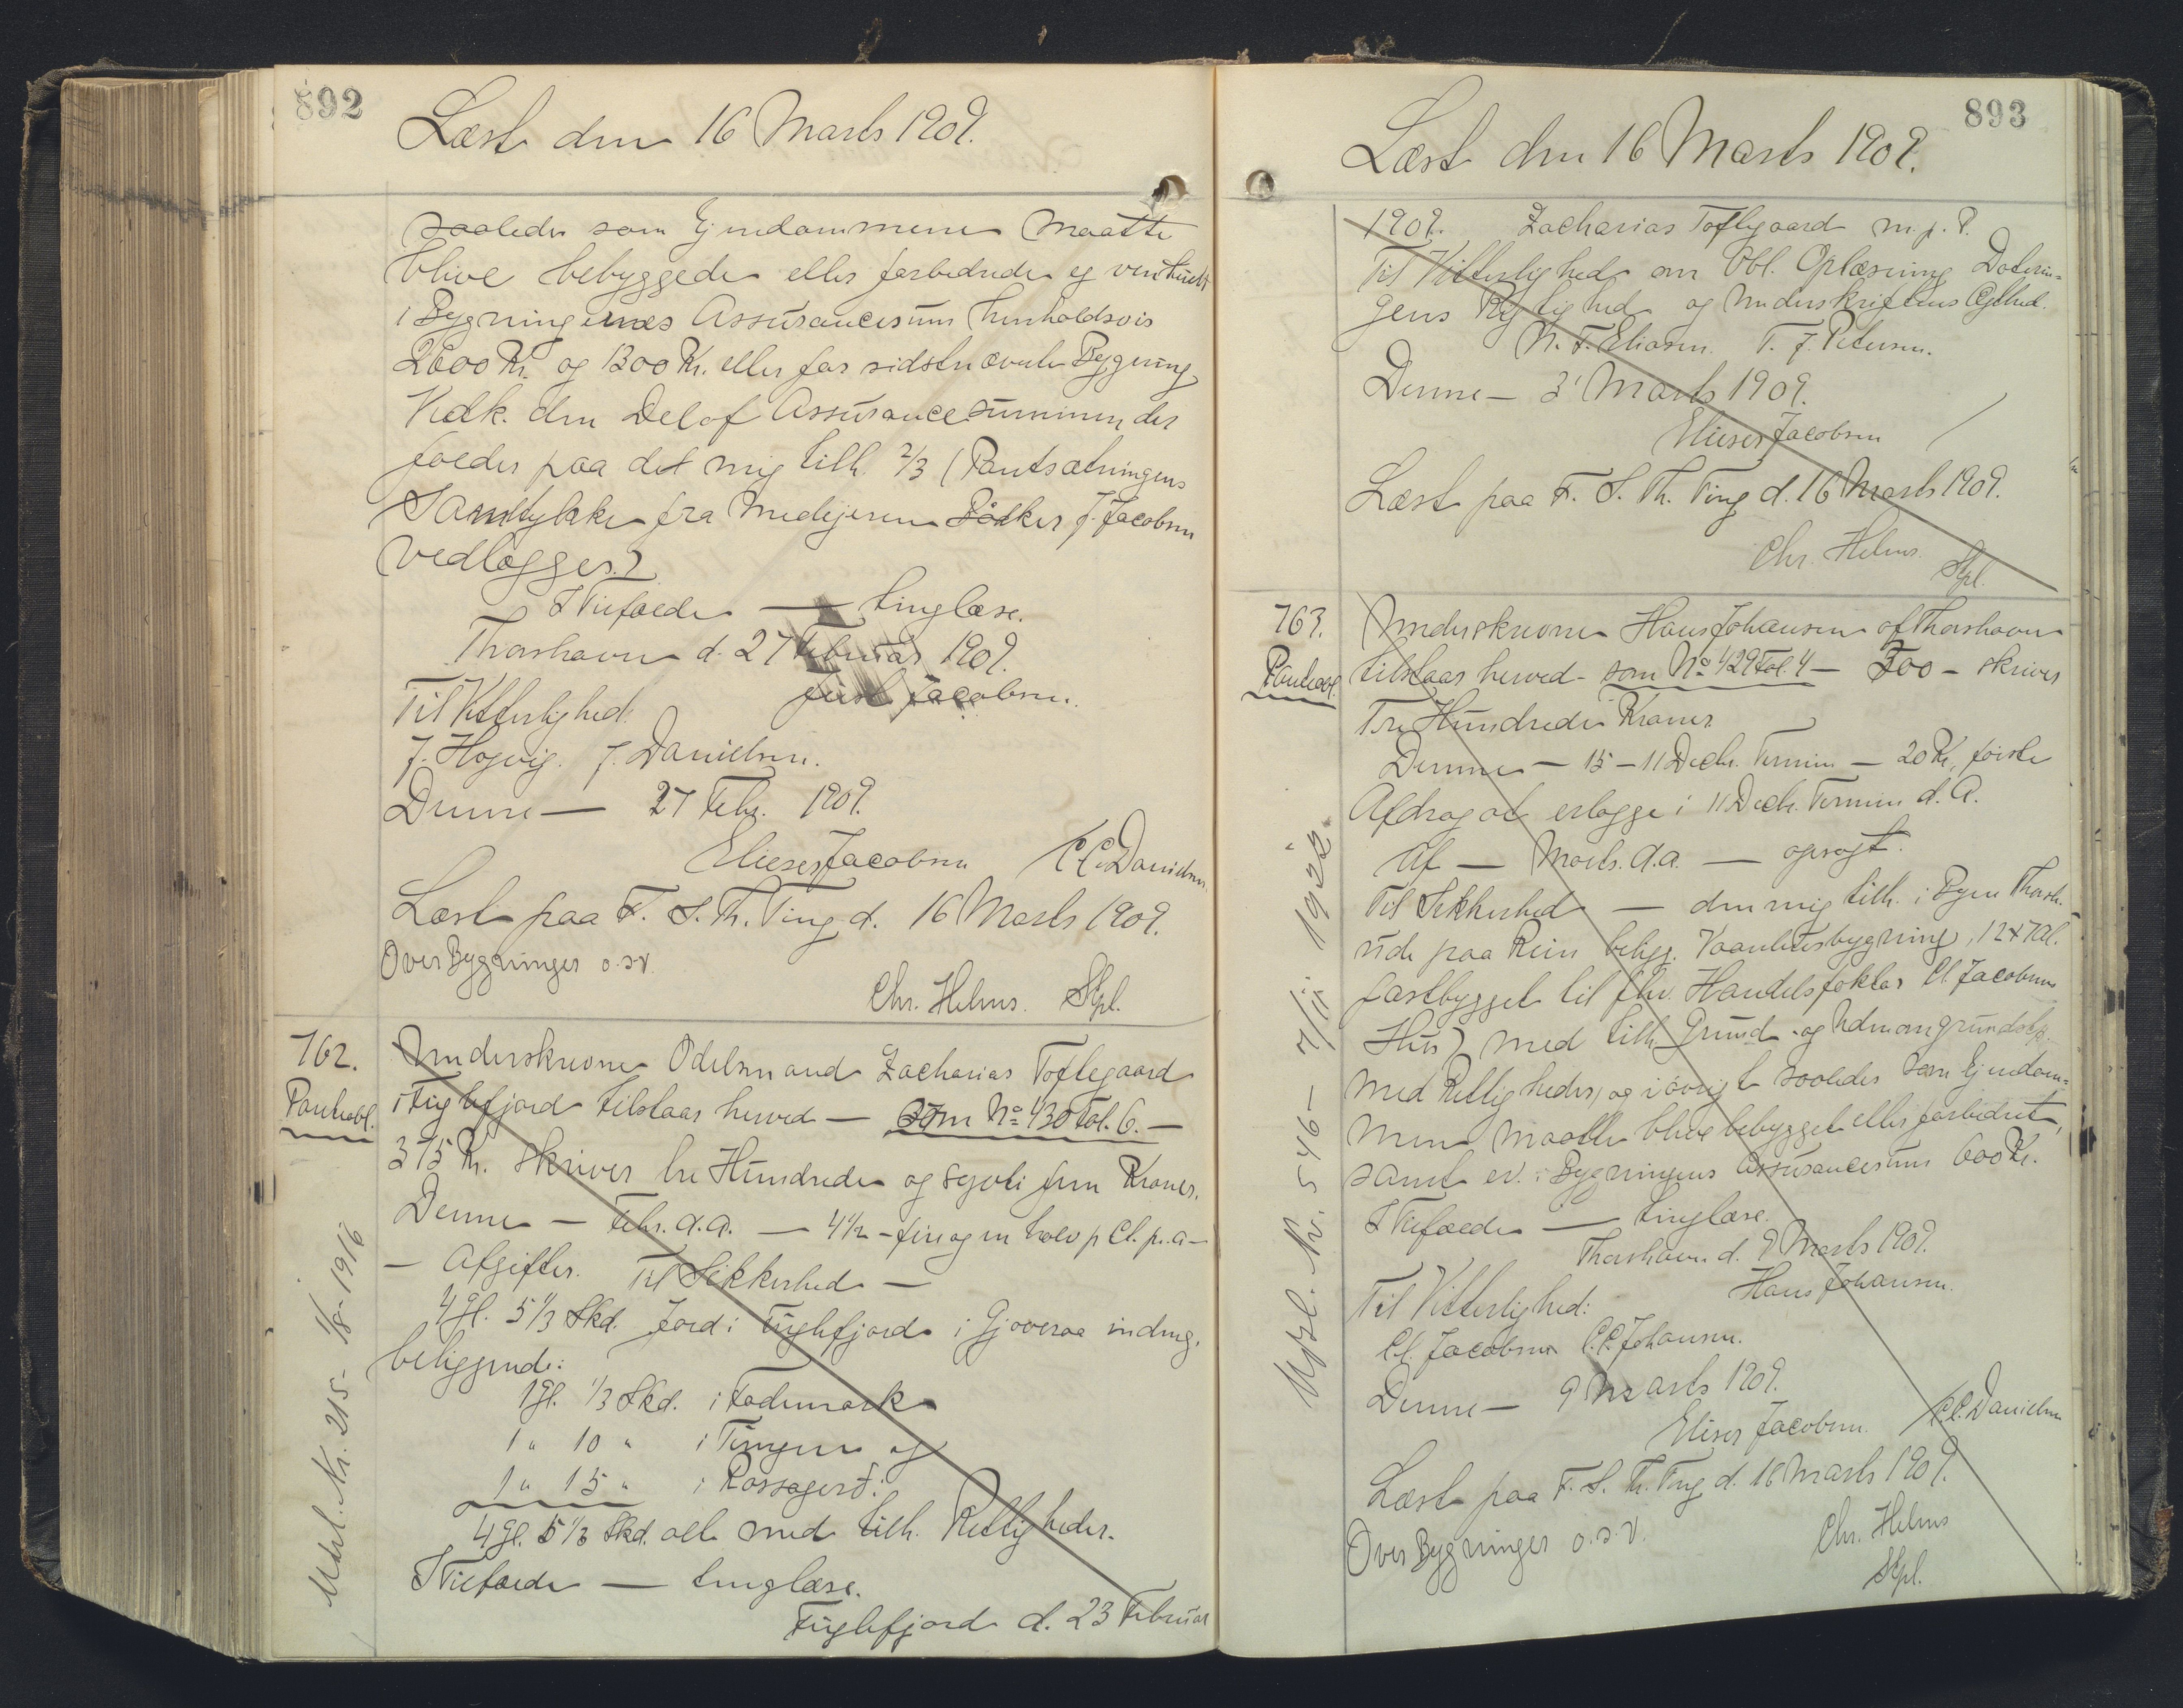 892
Læst den 16 Marts 1909.
saaledes som Ejendommene maatte
blive bebyggede eller forbedrede og eventuelt
i Bygningernes Assurancesum henholdsvis
2600 Kr. og 1300 Kr. eller for sidstnævnte Bygning
Vedk. den Del af Assurancesummen der
falder paa det mig tilh. 2/3 (Pantsætningens
Samtykke fra Medejeren J. Jacobsen
vedlægges.)
I Tilfælde — tinglæse.
Thorshavn d. 27 Februar 1909.
Til Vitterlighed: Jacobsen.
J. Højvig. J. Danielsen.
Denne — 27 Febr. 1909.
Elieser Jacobsen C.C. Danielsen
Læst paa F. S. Th. Ting d. 16 Marts 1909.
Over Bygninger o.s.v.
Chr. Helms. Stpl.
762.
Panteobl.
Underskrevne Odelsmand Zacharias Toftegaard
i Fuglefjord tilstaar herved — som No 430 Fol. 6. —
375 Kr. skriver tre Hundrede og syvti fem Kroner.
Denne — Febr. d.a. — 4 1/2 - fire og en halv p Ct. p.a —
— Afgifter. Til Sikkerhed —
4 Gl. 5 1/3 Skd. Jord i Fuglefjord i Gjoveraa indmg.
beliggende:
1 Gl. 1/3 Skd. i Fademark
1 " 10 " i Tungen og
1 " 15 " i
4 Gl. 5 1/3 Skd. alt med tilh. Rettigheder.
I Tilfælde — tinglæse.
Fuglefjord d. 23 Februar
Udsl. Nr. 215 - 1/8 - 1916
893
Læst den 16 Marts 1909.
1909. Zacharias Toftegaard m.p.P.
Til Vitterlighed om Obl. Oplæsning Daterin-
gens Rigtighed og Underskriftens Ægthed.
N. F. Eliasen. T. J. Petersen.
Denne — 3' Marts 1909.
Elieser Jacobsen
Læst paa F. S. Th. Ting d. 16 Marts 1909.
Chr. Helms.
Stpl.
763.
Panteobl.
Underskrevne Hans Johansen af Thorshavn
tilstaar herved - som No 429 Fol. 4 — 300 — skriver
Tre Hundrede Kroner.
Denne — 15 — 11 Decbr. Termin — 20 Kr., første
Afdrag at erlægge i 11 Decbr. Termin d. A.
Af — Marts. d.a. — opsagt.
Til Sikkerhed — den mig tilh. i Byen Thorsh.
ude paa Rein beligg. Vaaningsbygning, 12 x 7 Al.
fastbygget til fhv. Handelsfaktor Cl. Jacobsens
Hus) med tilh. Grund og Udmarksgrundstk.
med Rettigheder, og i øvrigt saaledes som Ejendom-
men maatte blive bebygget eller forbedret,
samt ev. i Bygningens Assurancesum 600 Kr.
I Tilfælde — tinglæse.
Thorshavn d. 9 Marts 1909.
Hans Johansen.
Til Vitterlighed:
Cl. Jacobsen C.C. Johansen.
Denne — 9 Marts 1909.
Elieser Jacobsen. C.C. Danielsen
Læst paa F. S. Th. Ting d. 16 Marts 1909.
Over Bygninger o.s.v.
Chr. Helms
Stpl.
Udsl. Nr. 546 — 7/11 1922.